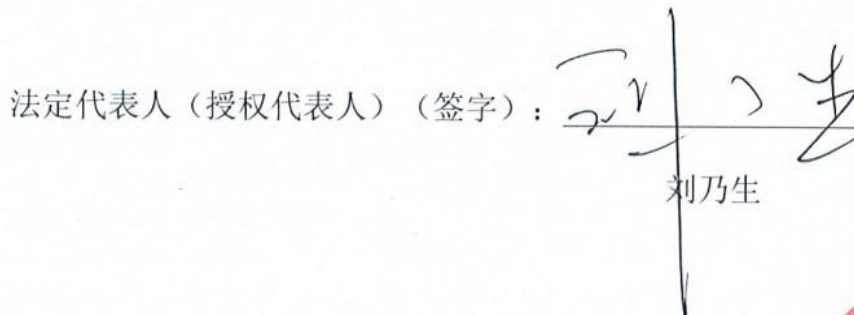 法定代表人（授权代表人）（签字）：
刘乃生